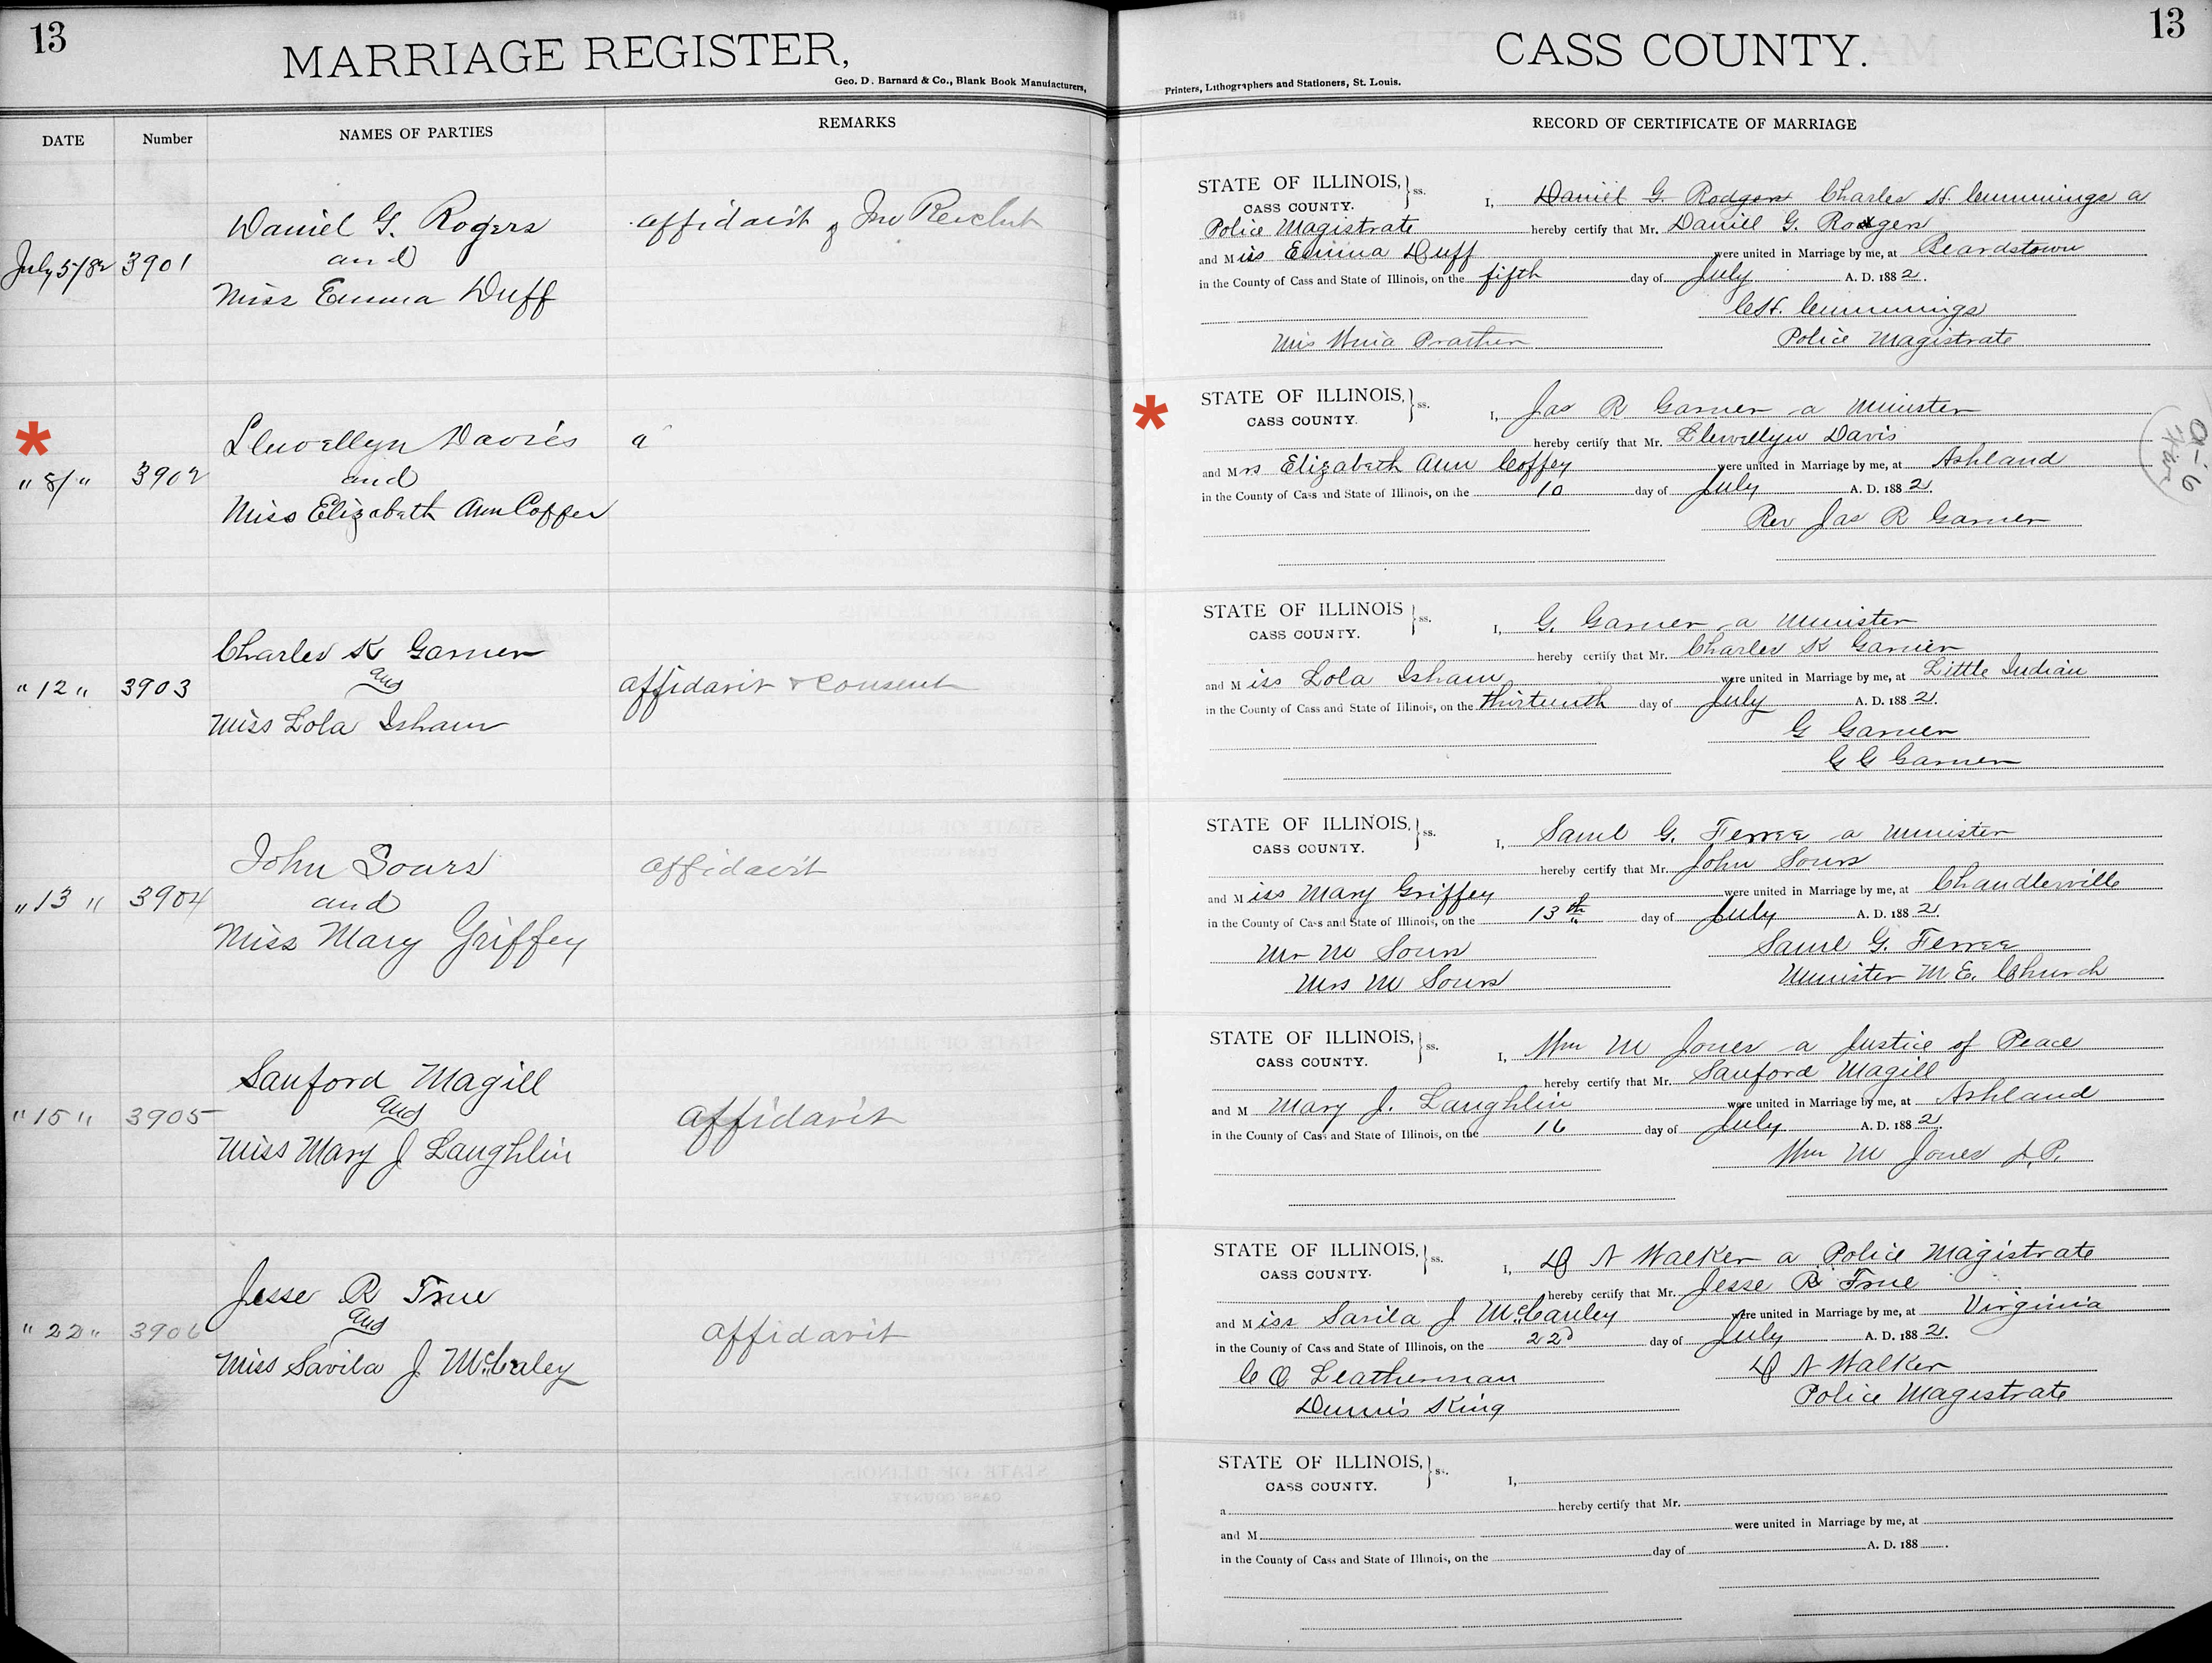 13
MARRIAGE REGISTER,
Geo. D. Barnard & Co., Blank Book Manufacturers,
DATE Number NAMES OF PARTIES REMARKS
Daniel G. Rogers affidavit of Jno
July 5/82 3901 and
Miss Emma Duff
*
Llewellyn Davies a
" 8/ " 3902 and
Miss Elizabeth Ann Coffey
Charles K Garner
" 12 " 3903 and affidavit & consent
Miss Lola Isham
John Sours affidavit
" 13 " 3904 and
Miss Mary Griffey
Sanford Magill
" 15 " 3905 and affidavit
Miss Mary J Laughlin
Jesse R True
" 22 " 3906 and affidavit
Miss Savila J McCaley
13
CASS COUNTY.
Printers, Lithographers and Stationers, St. Louis.
RECORD OF CERTIFICATE OF MARRIAGE
STATE OF ILLINOIS, } ss. I, Daniel G. Rodgers Charles H. Cummings a
CASS COUNTY.
Police Magistrate hereby certify that Mr. Daniel G. Rodgers
and Miss Emma Duff were united in Marriage by me, at Beardstown
in the County of Cass and State of Illinois, on the fifth day of July A. D. 1882.
C.H. Cummings
Police Magistrate
*
STATE OF ILLINOIS, } ss. I, Jas R Garner a Minister
CASS COUNTY.
hereby certify that Mr. Llewellyn Davis
and Mrs Elizabeth Ann Coffey were united in Marriage by me, at Ashland
in the County of Cass and State of Illinois, on the 10 day of July A. D. 1882.
Rev Jas R Garner
STATE OF ILLINOIS } ss. I, G. Garner a Minister
CASS COUNTY.
hereby certify that Mr. Charles K Garner
and Miss Lola Isham were united in Marriage by me, at Little Indian
in the County of Cass and State of Illinois, on the thirteenth day of July A. D. 1882.
G Garner
G G Garner
STATE OF ILLINOIS, } ss. I, Saml G. Ferree a Minister
CASS COUNTY.
hereby certify that Mr. John Sours
and Miss Mary Griffey were united in Marriage by me, at Chandlerville
in the County of Cass and State of Illinois, on the 13th day of July A. D. 1882.
Mr M Sours Saml G. Ferree
Mrs M Sours Minister M.E. Church
STATE OF ILLINOIS, } ss. I, Wm M Jones a Justice of Peace
CASS COUNTY.
hereby certify that Mr. Sanford Magill
and M Mary J. Laughlin were united in Marriage by me, at Ashland
in the County of Cass and State of Illinois, on the 16 day of July A. D. 1882.
Wm M Jones J.P.
STATE OF ILLINOIS, } ss. I, D N Walker a Police Magistrate
CASS COUNTY.
hereby certify that Mr. Jesse R True
and Miss Savila J McCauley were united in Marriage by me, at Virginia
in the County of Cass and State of Illinois, on the 22d day of July A. D. 1882.
C O Leatherman D N Walker
Dennis King Police Magistrate
STATE OF ILLINOIS, } ss. I,
CASS COUNTY.
a hereby certify that Mr.
and M were united in Marriage by me, at
in the County of Cass and State of Illinois, on the day of A. D. 188 .